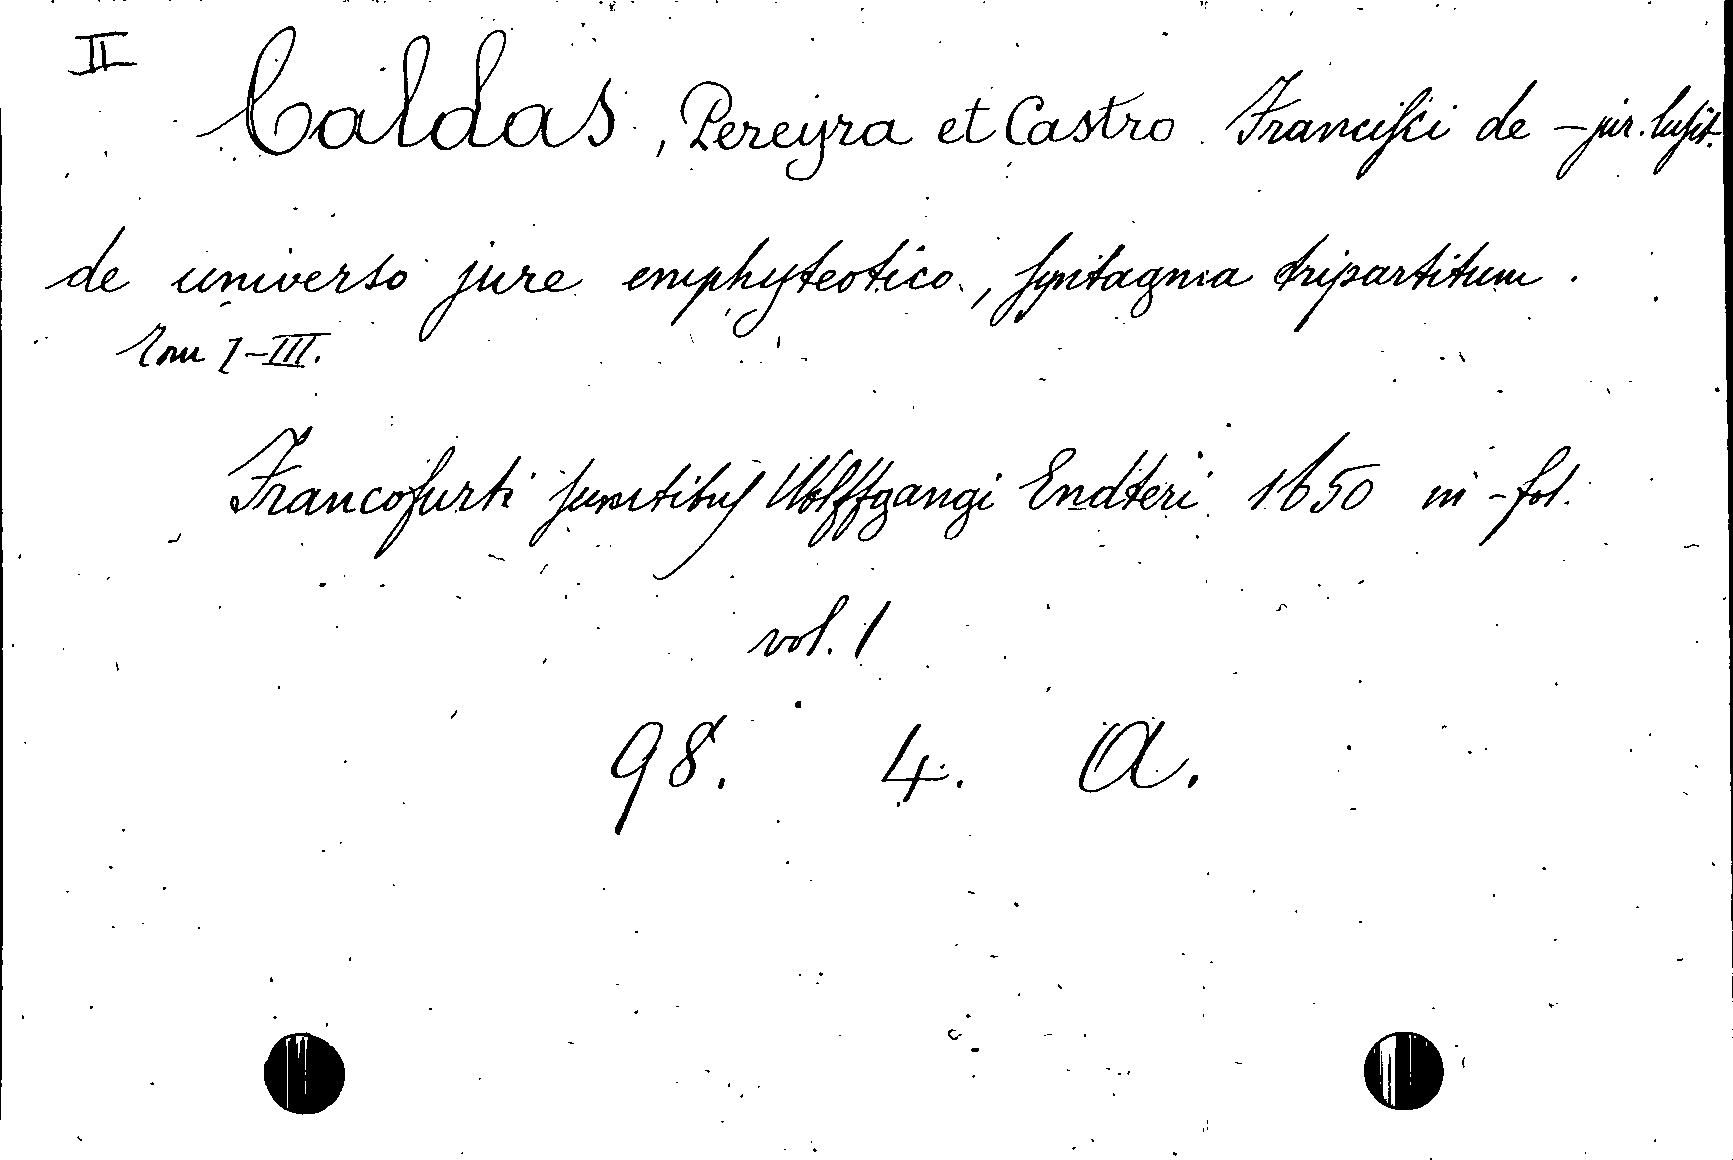 II
Caldas, Pereyra et Castro Francisci de – jur. lusit.
de universo jure emphyteotico, syntagma tripartitum.
Tom I–III.
Francofurti sumtibus Wolffgangi Endteri 1650 in-fol.
vol. 1
98. 4. A.